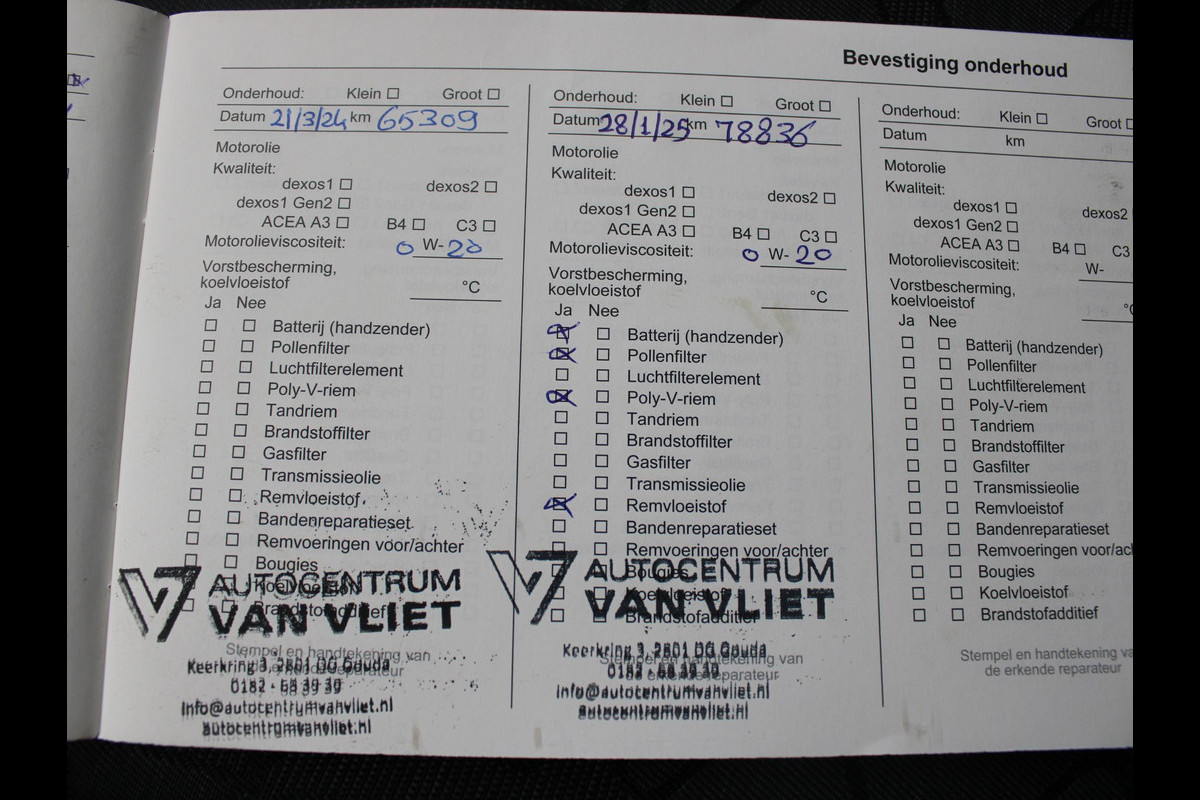 Bevestiging onderhoud
Onderhoud: Klein ☐ Groot ☐
Datum 21/3/24 km 65309
Motorolie
Kwaliteit:
dexos1 ☐ dexos2 ☐
dexos1 Gen2 ☐
ACEA A3 ☐ B4 ☐ C3 ☐
Motorolieviscositeit: 0 W- 20
Vorstbescherming,
koelvloeistof °C
Ja Nee
☐ ☐ Batterij (handzender)
☐ ☐ Pollenfilter
☐ ☐ Luchtfilterelement
☐ ☐ Poly-V-riem
☐ ☐ Tandriem
☐ ☐ Brandstoffilter
☐ ☐ Gasfilter
☐ ☐ Transmissieolie
☐ ☐ Remvloeistof
☐ ☐ Bandenreparatieset
☐ ☐ Remvoeringen voor/achter
☐ ☐ Bougies
☐ ☐ Koelvloeistof
☐ ☐ Brandstofadditief
AUTOCENTRUM
VAN VLIET
Stempel en handtekening van
de erkende reparateur
Keerkring 3, 2801 DG Gouda
0182 - 58 39 39
info@autocentrumvanvliet.nl
autocentrumvanvliet.nl
Onderhoud: Klein ☐ Groot ☐
Datum 28/1/25 km 78836
Motorolie
Kwaliteit:
dexos1 ☐ dexos2 ☐
dexos1 Gen2 ☐
ACEA A3 ☐ B4 ☐ C3 ☐
Motorolieviscositeit: 0 W- 20
Vorstbescherming,
koelvloeistof °C
Ja Nee
☒ ☐ Batterij (handzender)
☒ ☐ Pollenfilter
☐ ☐ Luchtfilterelement
☒ ☐ Poly-V-riem
☐ ☐ Tandriem
☐ ☐ Brandstoffilter
☐ ☐ Gasfilter
☐ ☐ Transmissieolie
☒ ☐ Remvloeistof
☐ ☐ Bandenreparatieset
☐ ☐ Remvoeringen voor/achter
☐ ☐ Bougies
☐ ☐ Koelvloeistof
☐ ☐ Brandstofadditief
AUTOCENTRUM
VAN VLIET
Stempel en handtekening van
de erkende reparateur
Keerkring 3, 2801 DG Gouda
0182 - 58 39 39
info@autocentrumvanvliet.nl
autocentrumvanvliet.nl
Onderhoud: Klein ☐ Groot ☐
Datum km
Motorolie
Kwaliteit:
dexos1 ☐ dexos2
dexos1 Gen2 ☐
ACEA A3 ☐ B4 ☐ C3
Motorolieviscositeit: W-
Vorstbescherming,
koelvloeistof °C
Ja Nee
☐ ☐ Batterij (handzender)
☐ ☐ Pollenfilter
☐ ☐ Luchtfilterelement
☐ ☐ Poly-V-riem
☐ ☐ Tandriem
☐ ☐ Brandstoffilter
☐ ☐ Gasfilter
☐ ☐ Transmissieolie
☐ ☐ Remvloeistof
☐ ☐ Bandenreparatieset
☐ ☐ Remvoeringen voor/ach
☐ ☐ Bougies
☐ ☐ Koelvloeistof
☐ ☐ Brandstofadditief
Stempel en handtekening va
de erkende reparateur